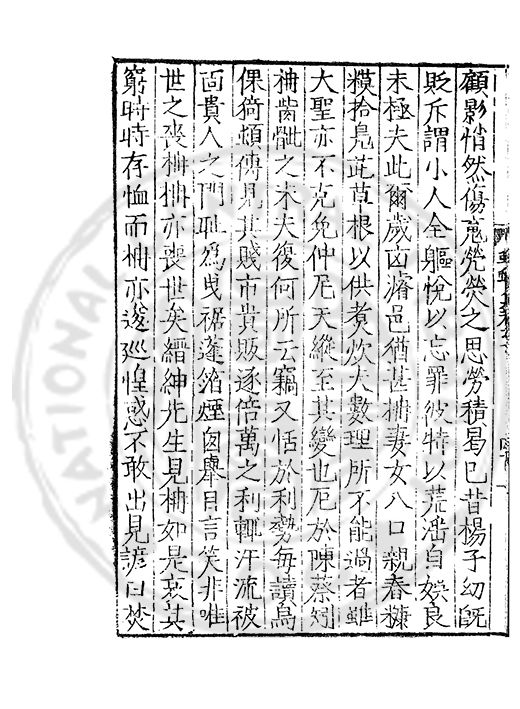 顧影悄然傷寃煢煢之思勞積曷巳昔楊子幼旣
貶斥謂小人全軀悅以忘罪彼特以荒滛自娛良
未極夫此爾歲凶濬邑猶甚柟妻女八口親舂糠
糗拾鳧茈草根以供煮炊夫數理所不能過者雖
大聖亦不克免仲尼天縱至其變也厄於陳蔡矧
柟啙骴之末夫復何所云竊又恬於利勢每讀烏
倮猗頓傳見其賤市貴販逐倍萬之利輙汗流被
面貴人之門耻爲曳裾蓬箔煙囪舉目言笑非唯
世之喪柟柟亦喪世矣縉紳先生見柟如是哀其
窮時時存恤而柟亦逡廵惶惑不敢出見諺曰焚